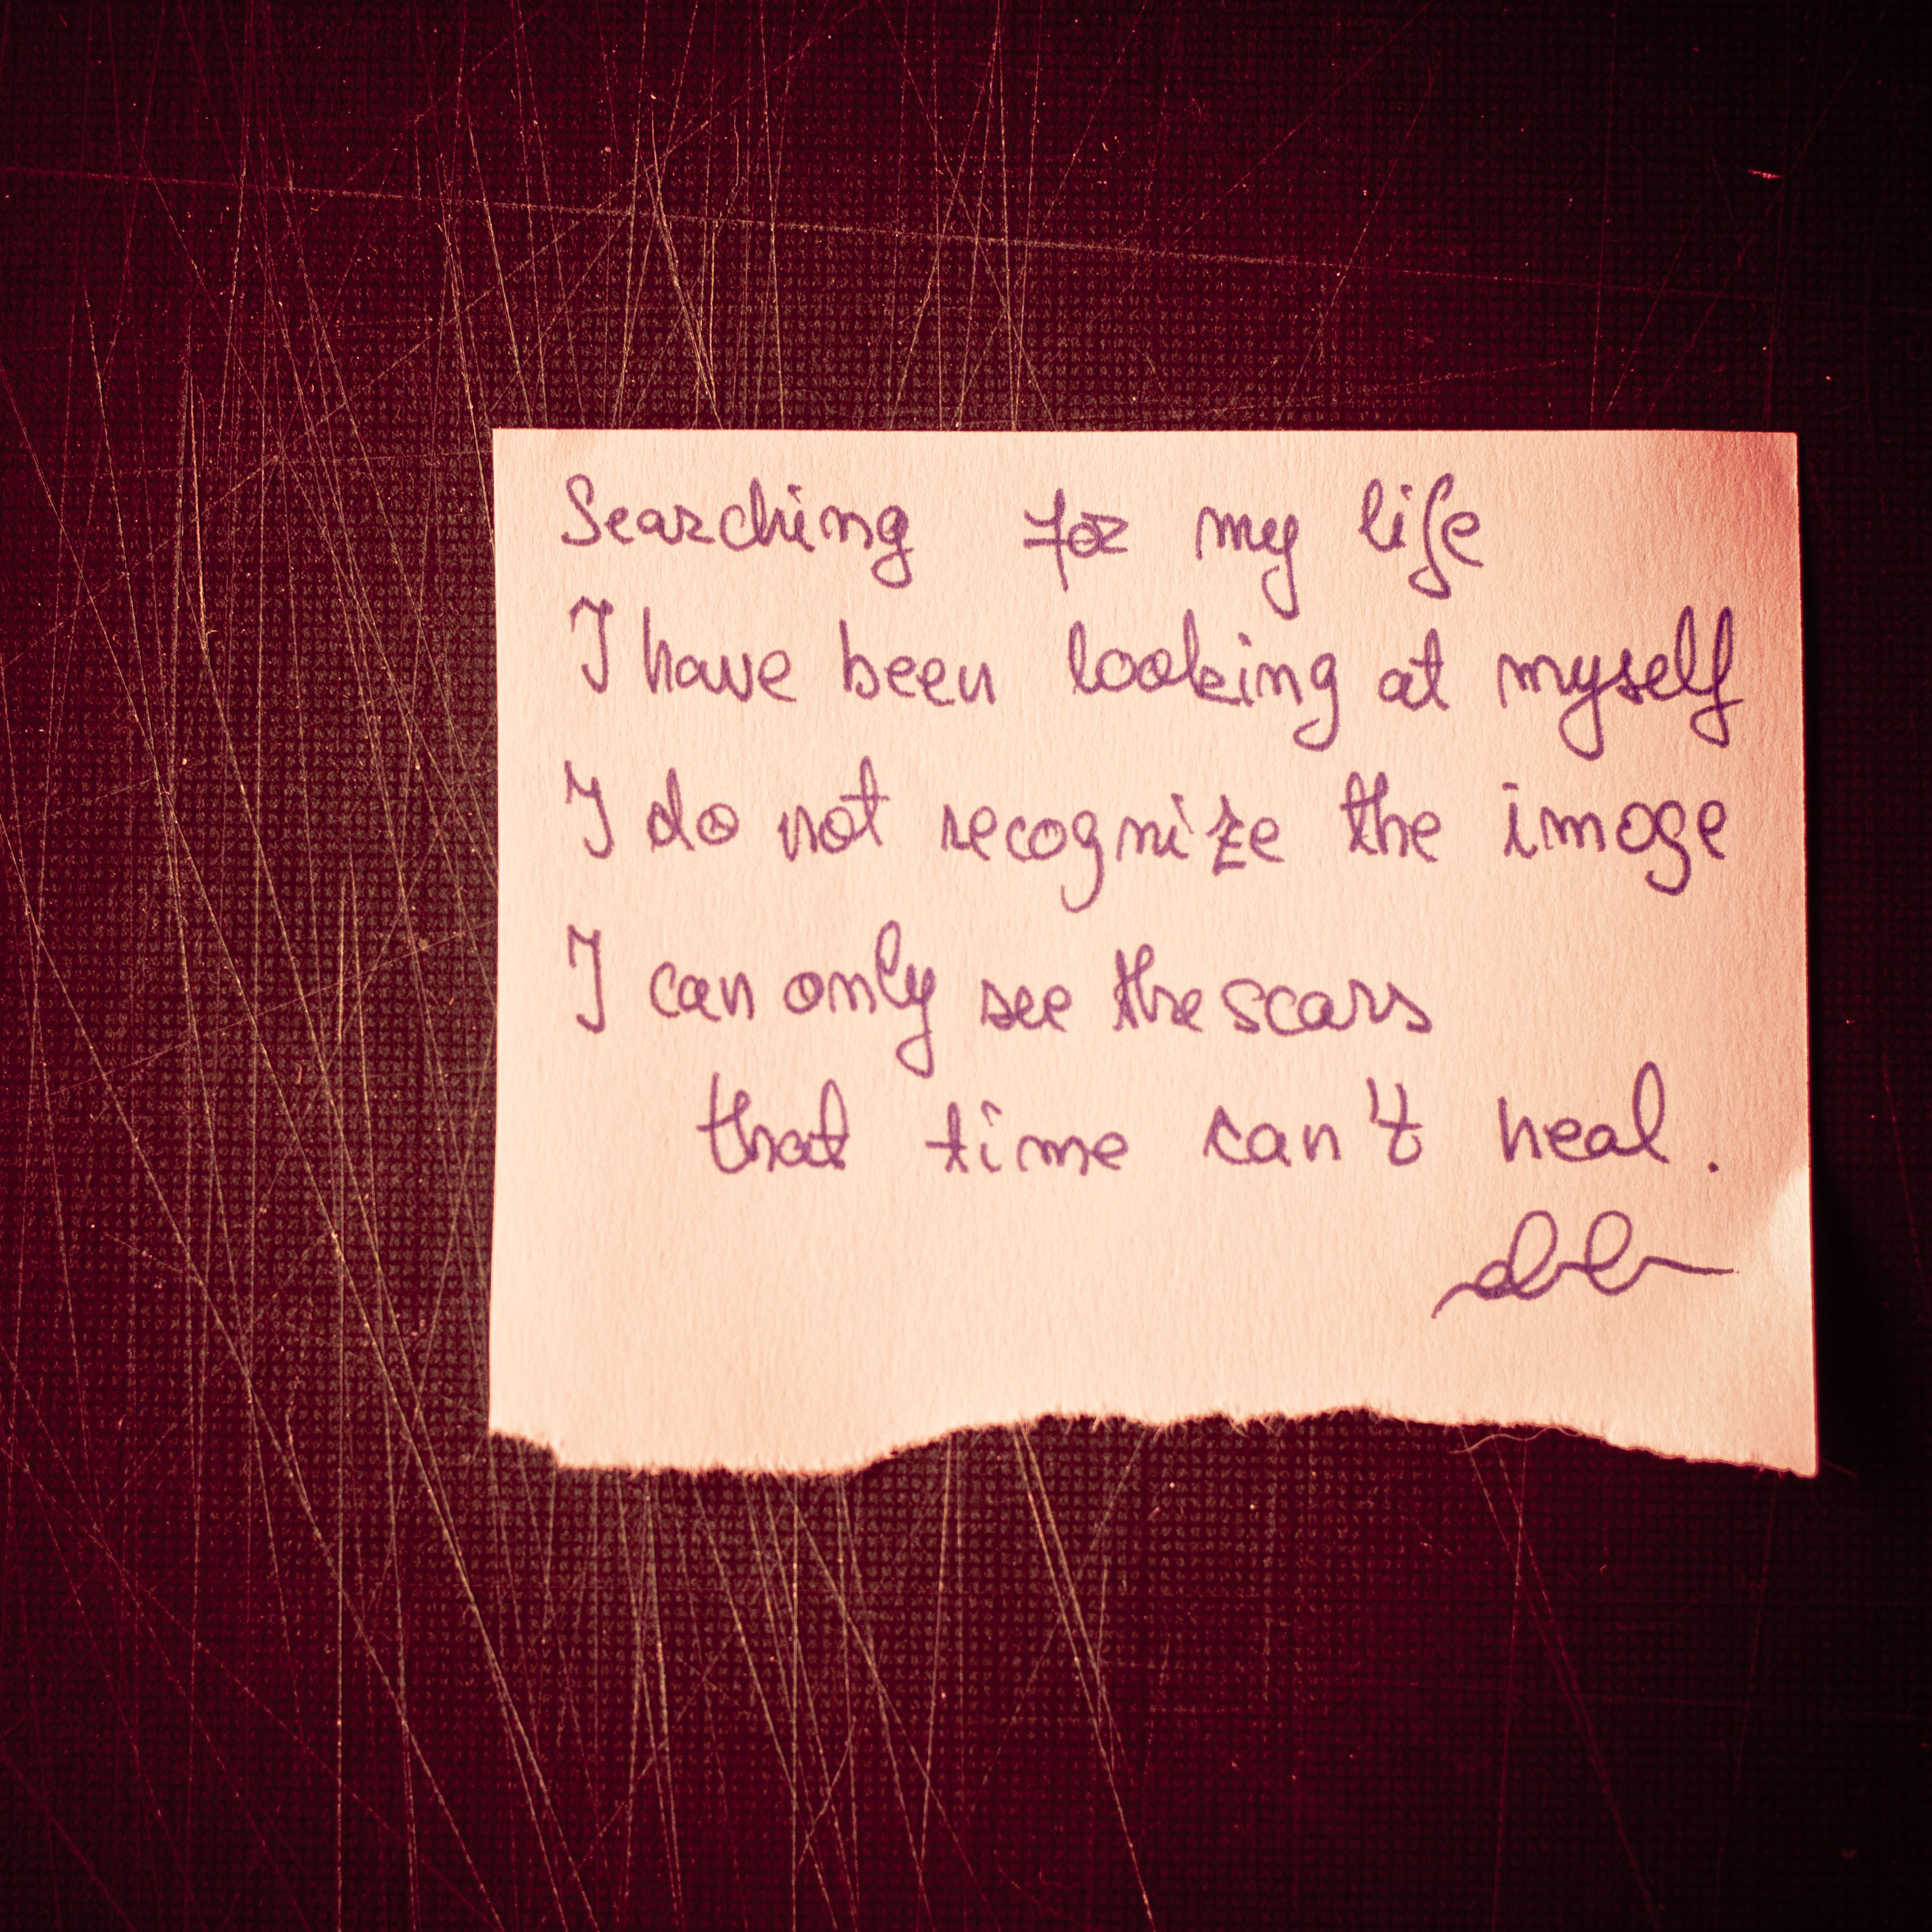 Searching for my life
I have been looking at myself
I do not recognize the image
I can only see the scars
that time can't heal.